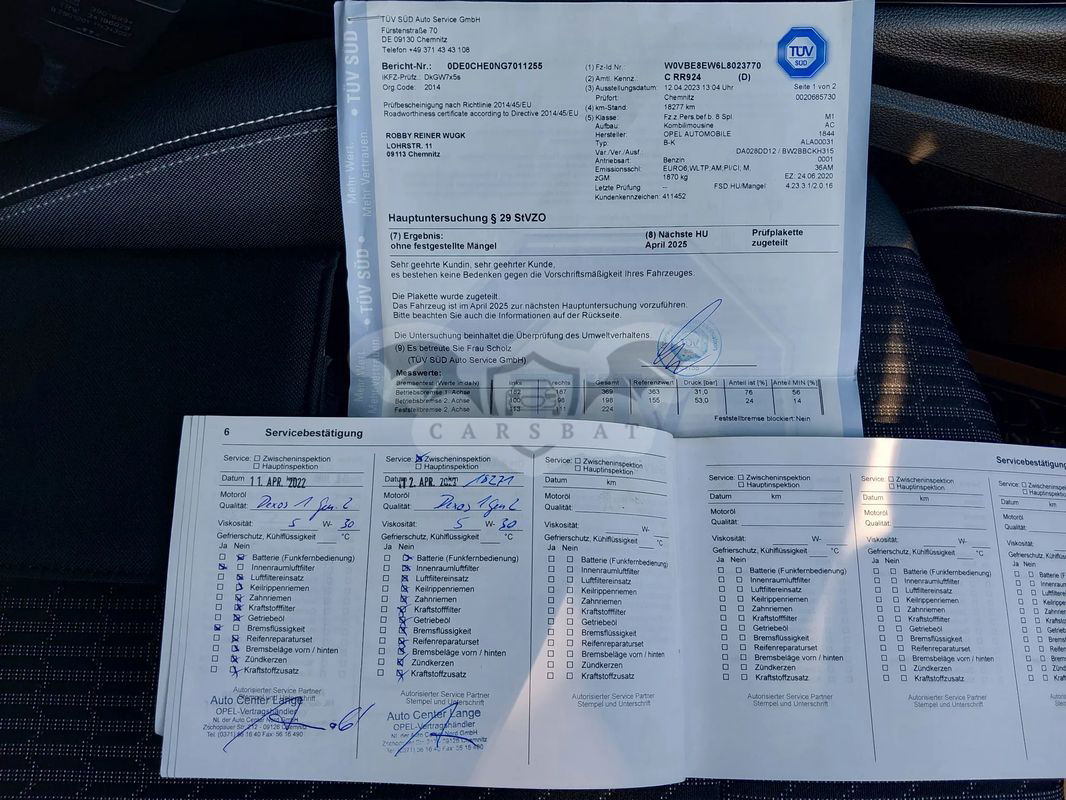 TÜV SÜD Auto Service GmbH
Fürstenstraße 70
DE 09130 Chemnitz
Telefon +49 371 43 43 108
TÜV SÜD
Mehr Wert.
Mehr Vertrauen.
TÜV SÜD
TÜV
SÜD
Bericht-Nr.: 0DE0CHE0NG7011255
IKFZ-Prüfz.: DkGW7x5s
Org.Code: 2014
Prüfbescheinigung nach Richtlinie 2014/45/EU
Roadworthiness certificate according to Directive 2014/45/EU
ROBBY REINER WUGK
LOHRSTR. 11
09113 Chemnitz
(1) Fz-Id.Nr.: W0VBE8EW6L8023770
(2) Amtl. Kennz.: C RR924 (D)
(3) Ausstellungsdatum: 12.04.2023 13:04 Uhr Seite 1 von 2
Prüfort: Chemnitz 0020685730
(4) km-Stand: 18277 km
(5) Klasse: Fz.z.Pers.bef.b. 8 Spl M1
Aufbau: Kombilimousine AC
Hersteller: OPEL AUTOMOBILE 1844
Typ: B-K ALA00031
Var./Ver./Ausf.: DA028DD12 / BW2BBCKH315
Antriebsart: Benzin 0001
Emissionsschl.: EURO6;WLTP;AM;PI/CI; M, 36AM
zGM: 1870 kg EZ: 24.06.2020
Letzte Prüfung -- FSD HU/Mängel: 4.23.3.1/2.0.16
Kundenkennzeichen: 411452
Hauptuntersuchung § 29 StVZO
(7) Ergebnis: (8) Nächste HU Prüfplakette
ohne festgestellte Mängel April 2025 zugeteilt
Sehr geehrte Kundin, sehr geehrter Kunde,
es bestehen keine Bedenken gegen die Vorschriftsmäßigkeit Ihres Fahrzeuges.
Die Plakette wurde zugeteilt.
Das Fahrzeug ist im April 2025 zur nächsten Hauptuntersuchung vorzuführen.
Bitte beachten Sie auch die Informationen auf der Rückseite.
Die Untersuchung beinhaltet die Überprüfung des Umweltverhaltens.
(9) Es betreute Sie Frau Scholz
(TÜV SÜD Auto Service GmbH)
Messwerte:
Bremsentest (Werte in daN) links rechts Gesamt Referenzwert Druck [bar] Anteil ist [%] Anteil MIN [%]
Betriebsbremse 1. Achse 182 187 369 363 31,0 76 56
Betriebsbremse 2. Achse 100 98 198 155 53,0 24 14
Feststellbremse 2. Achse 113 111 224
Feststellbremse blockiert:Nein
CARSBAT
6 Servicebestätigung
Service: Zwischeninspektion
Hauptinspektion
Datum 11. APR. 2022
Motoröl
Qualität: Dexos 1 Gen 2
Viskosität: 5 W- 30
Gefrierschutz, Kühlflüssigkeit °C
Ja Nein
Batterie (Funkfernbedienung)
Innenraumluftfilter
Luftfiltereinsatz
Keilrippenriemen
Zahnriemen
Kraftstofffilter
Getriebeöl
Bremsflüssigkeit
Reifenreparaturset
Bremsbeläge vorn / hinten
Zündkerzen
Kraftstoffzusatz
Autorisierter Service Partner
Stempel und Unterschrift
Auto Center Lange
OPEL-Vertragshändler
Nl. der Auto Center Nord GmbH
Zschopauer Str. 212 - 09126 Chemnitz
Tel. (0371) 56 16 40 Fax: 56 16 490
Service: Zwischeninspektion
Hauptinspektion
Datum 12. APR. 18271
Motoröl
Qualität: Dexos 1 Gen 2
Viskosität: 5 W- 30
Gefrierschutz, Kühlflüssigkeit °C
Ja Nein
Batterie (Funkfernbedienung)
Innenraumluftfilter
Luftfiltereinsatz
Keilrippenriemen
Zahnriemen
Kraftstofffilter
Getriebeöl
Bremsflüssigkeit
Reifenreparaturset
Bremsbeläge vorn / hinten
Zündkerzen
Kraftstoffzusatz
Autorisierter Service Partner
Stempel und Unterschrift
Auto Center Lange
OPEL-Vertragshändler
Nl. der Auto Center Nord GmbH
Service: Zwischeninspektion
Hauptinspektion
Datum km
Motoröl
Qualität:
Viskosität: W-
Gefrierschutz, Kühlflüssigkeit °C
Ja Nein
Batterie (Funkfernbedienung)
Innenraumluftfilter
Luftfiltereinsatz
Keilrippenriemen
Zahnriemen
Kraftstofffilter
Getriebeöl
Bremsflüssigkeit
Reifenreparaturset
Bremsbeläge vorn / hinten
Zündkerzen
Kraftstoffzusatz
Autorisierter Service Partner
Stempel und Unterschrift
Servicebestätigung
Service: Zwischeninspektion
Hauptinspektion
Datum km
Motoröl
Qualität:
Viskosität: W-
Gefrierschutz, Kühlflüssigkeit °C
Ja Nein
Batterie (Funkfernbedienung)
Innenraumluftfilter
Luftfiltereinsatz
Keilrippenriemen
Zahnriemen
Kraftstofffilter
Getriebeöl
Bremsflüssigkeit
Reifenreparaturset
Bremsbeläge vorn / hinten
Zündkerzen
Kraftstoffzusatz
Autorisierter Service Partner
Stempel und Unterschrift
Service: Zwischeninspektion
Hauptinspektion
Datum km
Motoröl
Qualität:
Viskosität: W-
Gefrierschutz, Kühlflüssigkeit °C
Ja Nein
Batterie (Funkfernbedienung)
Innenraumluftfilter
Luftfiltereinsatz
Keilrippenriemen
Zahnriemen
Kraftstofffilter
Getriebeöl
Bremsflüssigkeit
Reifenreparaturset
Bremsbeläge vorn / hinten
Zündkerzen
Kraftstoffzusatz
Autorisierter Service Partner
Stempel und Unterschrift
Service: Zwischeninspektion
Hauptinspektion
Datum km
Motoröl
Qualität:
Viskosität:
Gefrierschutz, Kühlflüssigkeit
Ja Nein